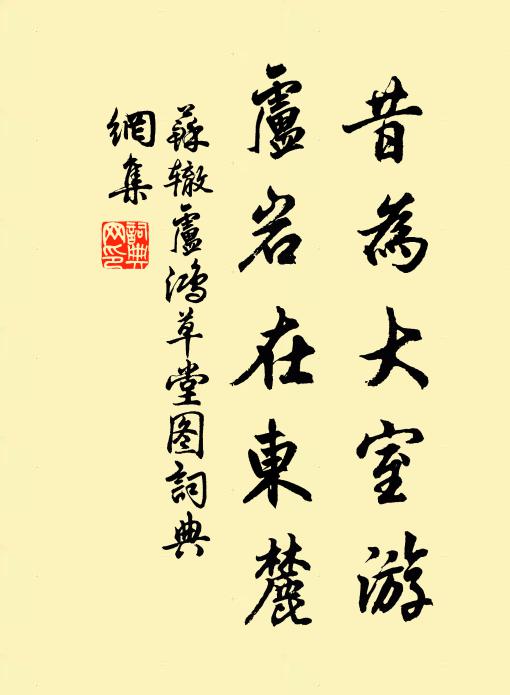 昔為大室游
盧岩在東麓
蘇辙盧鴻草堂图詞典
網集
詞典网印